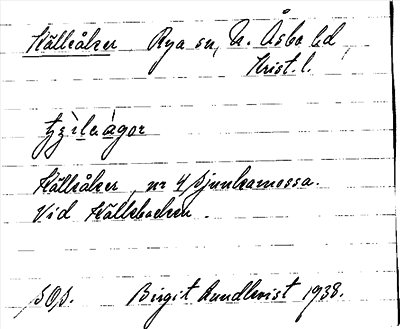 Källåker Rya sn, N. Åsbo hd,
Krist. l.
Källåker, nr 4 Sjunkamossa.
Vid Källebacken.
SOS. Birgit Lundkvist 1938.